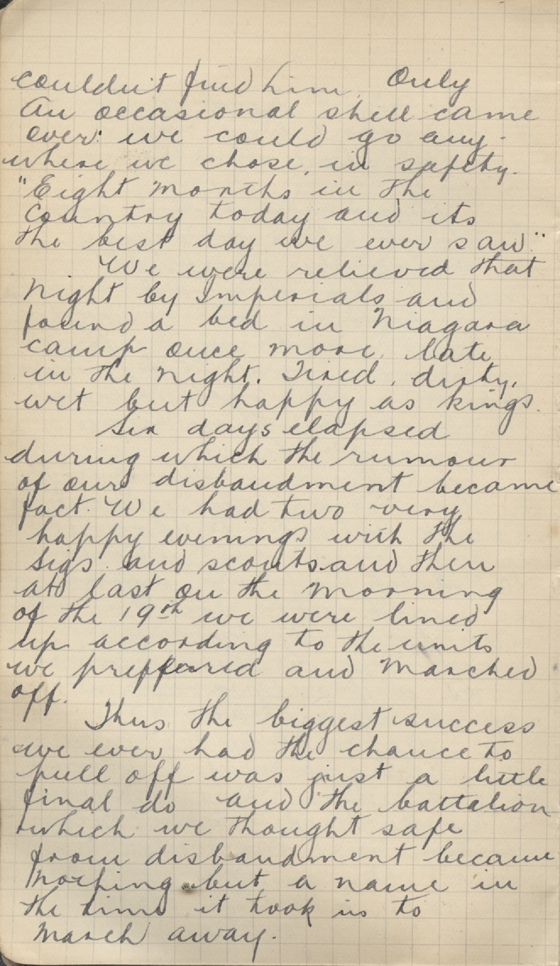 couldn't find him. Only
an occasional shell came
over: we could go any-
where we chose, in safety.
"Eight months in the
country today and its
the best day we ever saw."
We were relieved that
night by Imperials and
found a bed in Niagara
camp once more, late
in the night. Tired, dirty,
wet but happy as kings.
Six days elapsed
during which the rumour
of our disbandment became
fact. We had two very
happy evenings with the
Sigs. and scouts. and then
at last on the morning
of the 19th we were lined
up according to the units
we preffered and marched
off.
Thus the biggest success
we ever had the chance to
pull off was just a little
final do and the battalion
which we thought safe
from disbandment became
nothing but a name in
the time it took us to
march away.